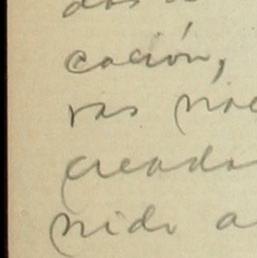 cación,
ras
creada
nido a